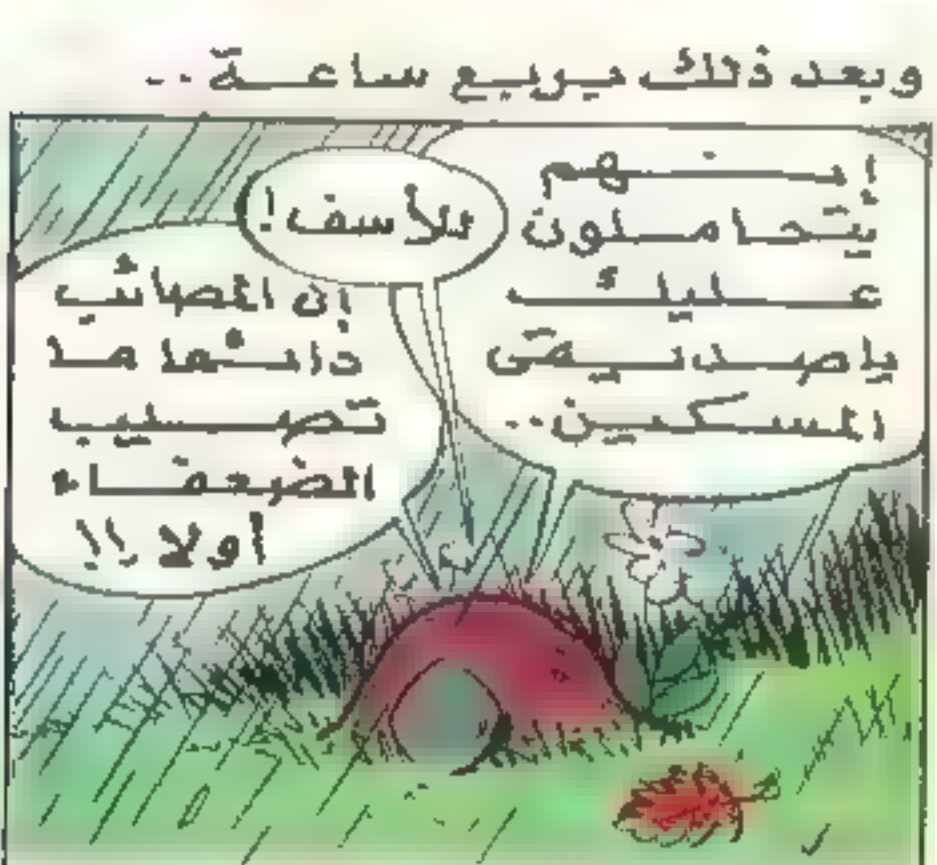 وبعد ذلك بربع ساعة..
إنهم
يتحاملون
عليك
ياصديقى
المسكين..
للأسف!
إن المصائب
دائما ما
تصيب
الضعفاء
أولا!!